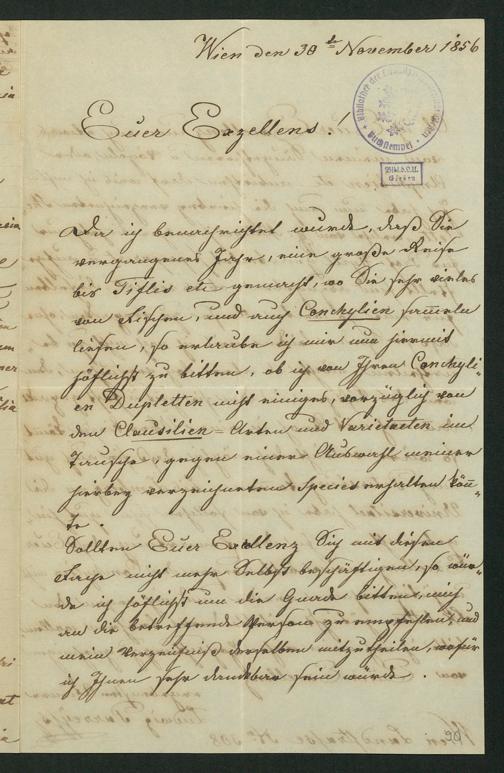 Wien den 30t November 1856
Euer Exzellenz!
Da ich benachrichtet wurde, daß Sie
vergangenes Jahr, eine große Reise
bis Tiflis etc gemacht, wo Sie sehr vieles
von Fischen, und auch Conchylien sammeln
ließen, so erlaube ich mir nun hiermit
höflichst zu bitten, ob ich von Ihren Conchyli-
en Dupletten nicht einiges, vorzüglich von
den Clausilien-Arten und Varietaeten im
Tausche, gegen einer Auswahl meiner
hierbey verzeichneten Species erhalten könn-
te.
Sollten Euer Exellenz Sich mit diesem
Fache nicht mehr Selbst beschäftigen, so wür-
de ich höflichst um die Gnade bitten, mich
an die betreffende Person zu empfehlen, und
mein Verzeichniß derselben mitzutheilen, wofür
ich Ihnen sehr dankbar sein würde.
90